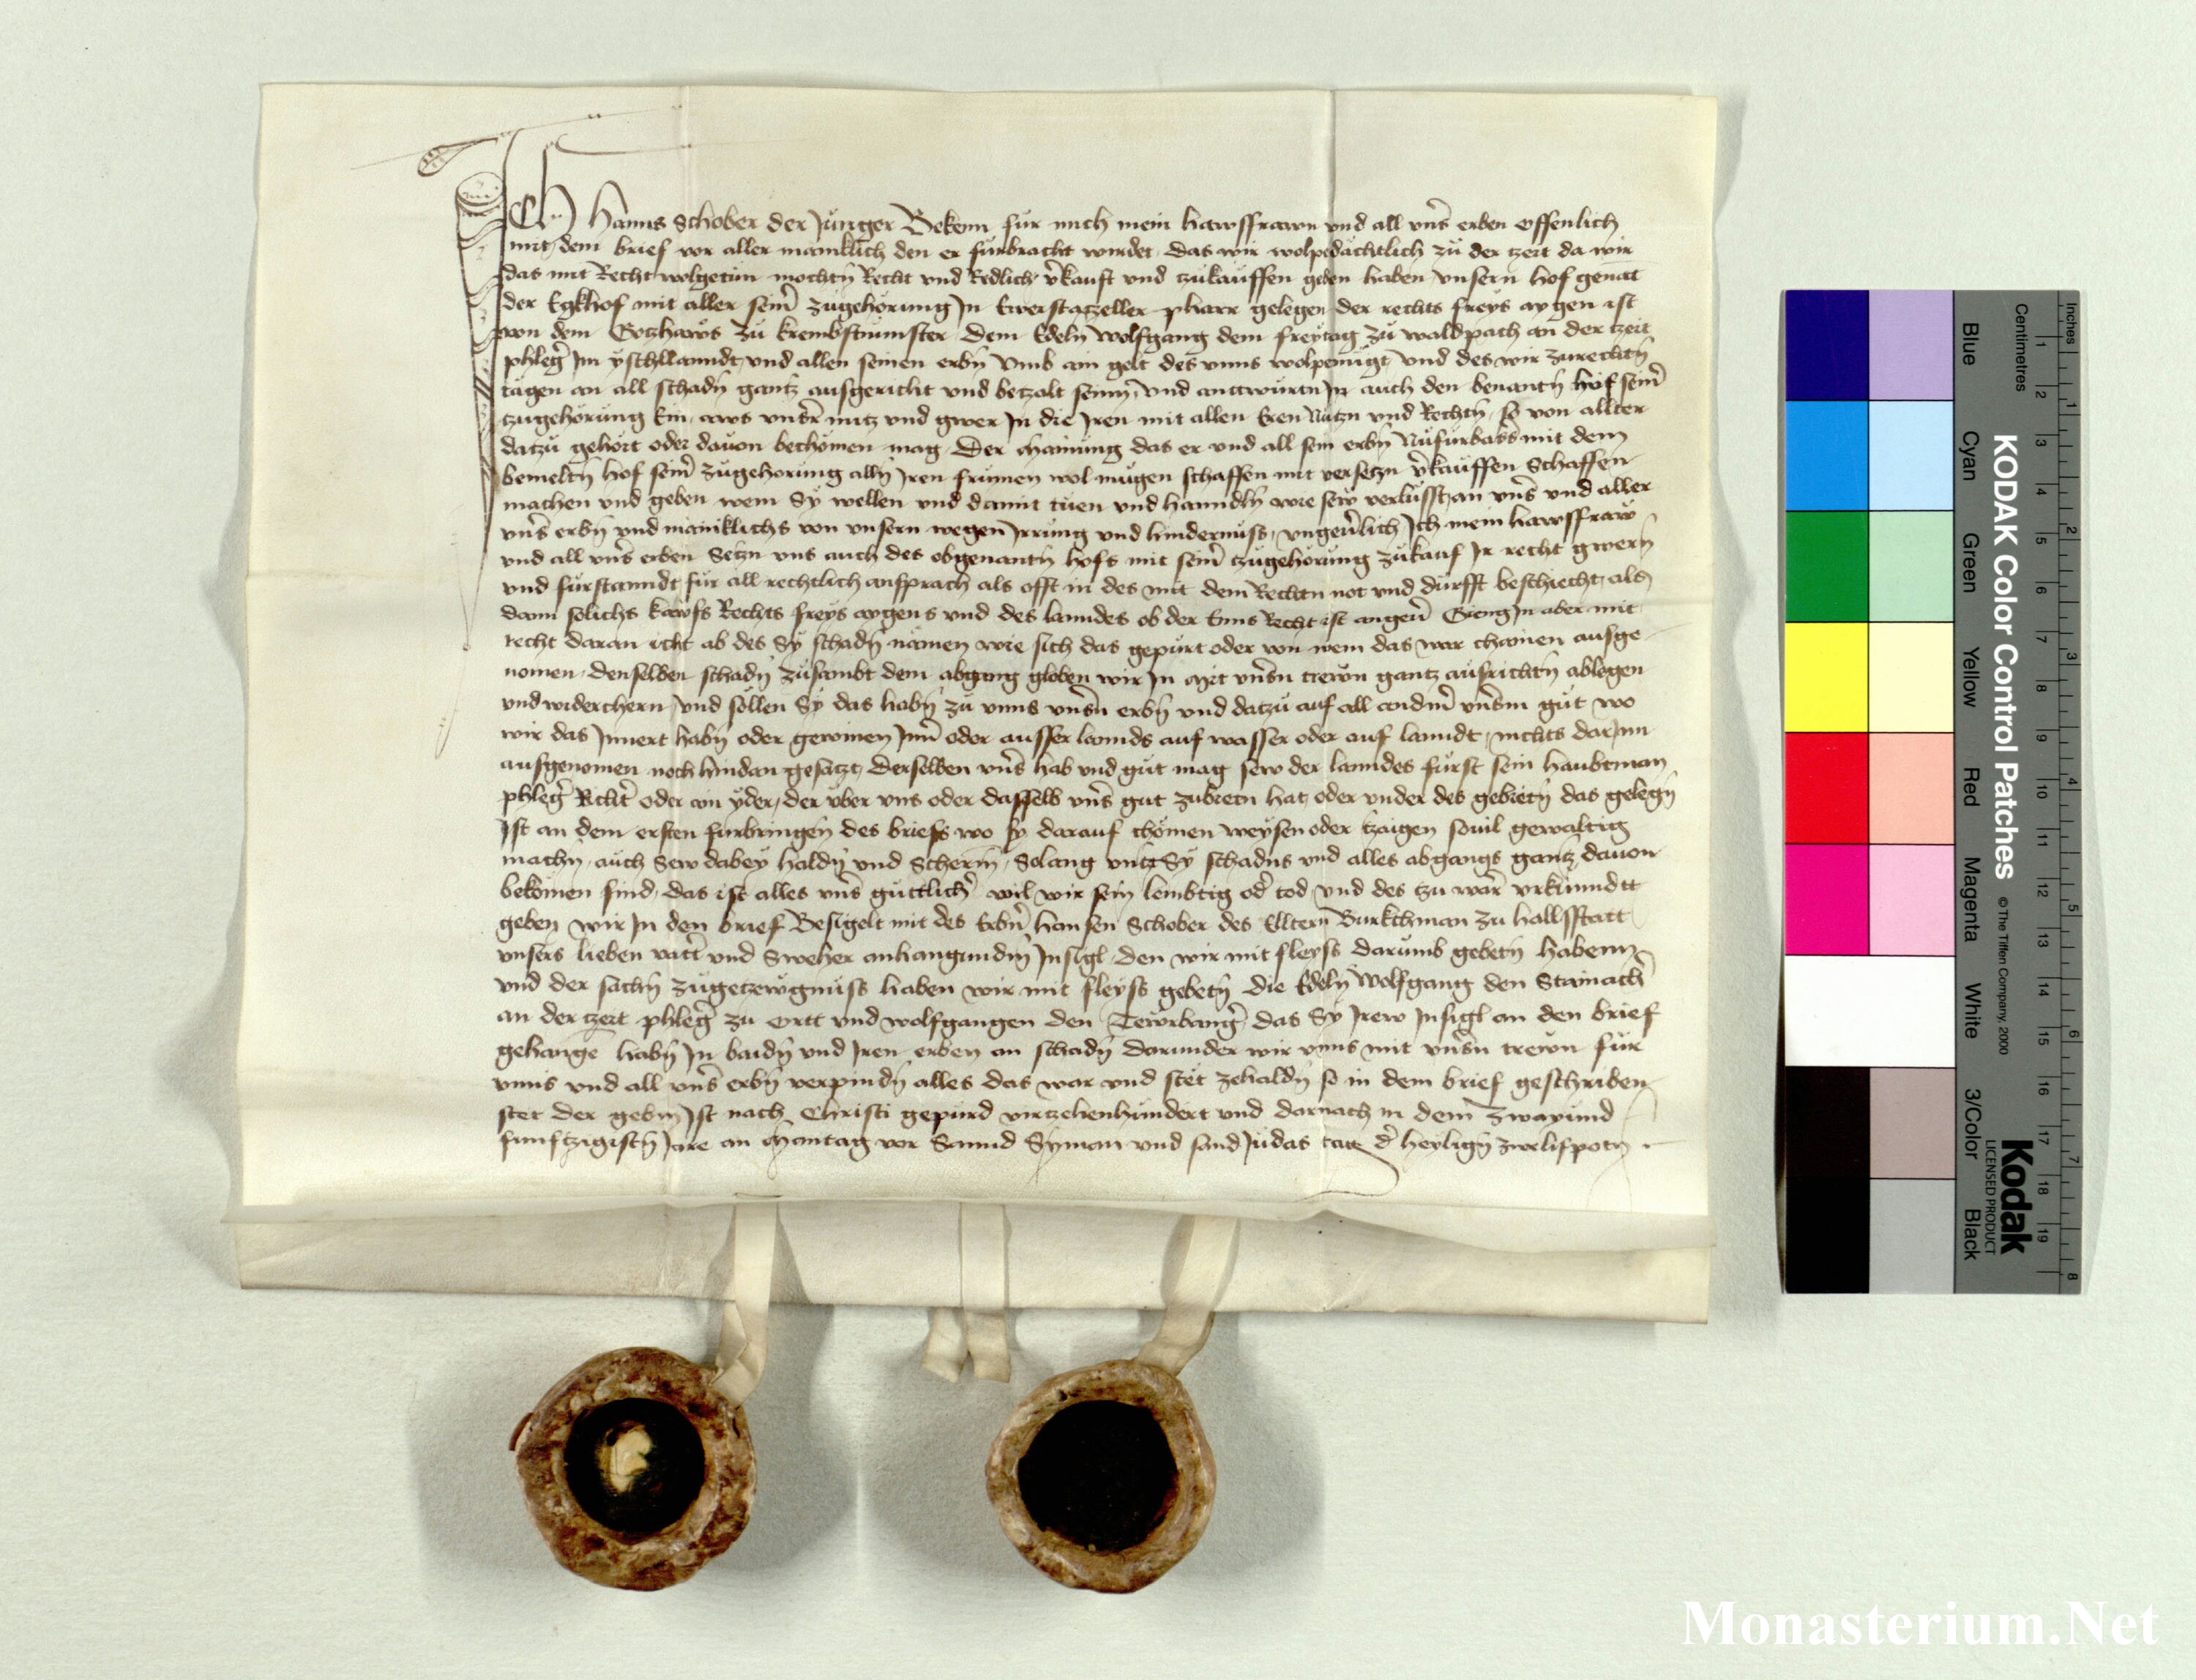 Ich Hanns Schober der Junger Bekenn fur mich mein hawsfrawn und all unser erben offenlich
mit dem brief vor aller manniklich den er furbracht wirdet das wir wolpedächtlich zu der tzeit da wir
das mit Recht wolgetun mochtn Recht und Redlich verkauft und zukauffen geben haben unsern hof genant
der Egkhof mit aller seiner zugehörung In pharr gelegen der rechts freys aygen ist
von dem Gotzhaws zu krembsmunster dem Edeln Wolfgang dem freytag zu waldpach an der tzeit
phleger Im yschllanndt und allen seinen erbn Umb ain gelt des unns wolpenügt und des wir zurechtn
tagen an all schadn gantz ausgericht und betzalt seinn und anttwurtn In auch den benantn hof seiner
zugehörung Ein aws unser nutz und gwer In die Iren mit allen Eren Nutzn und Rechtn so von allter
datzu gehört oder davon bechömen mag Der maynung das er und all sein erbn Nufurbass mit dem
bemeltn hof seiner zugehorung alln Iren frumen wol mugen schaffen mit versetzn verkauffen Schaffen
machen und geben wem Sy wellen und damit tuen und hanndln wie sew verlusst an unser und aller
unser erbn und maniklichs von unsern wegen Irrung und hindernuss ungeverlich Ich mein hawsfraw
und all unser erben Setzn uns auch des obgenantn hofs mit seiner tzugehörung zukauf Ir recht gwern
und furstanndt fur all rechtlich ansprach als offt in des mit dem Rechtn not und durfft beschiecht als
dann solichs kawfs Rechts freys aygens und des lanndes ob der Enns Recht ist angever Gieng In aber mit
recht daran icht ab des Sy schadn namen wie sich das gepurt oder von wem das war chainen ausge
nomen denselben schadn zusambt dem abgang globen wir In Mit unsern trewn gantz ausrichtn ablegen
und widerchern Und söllen Sy das habn zu unns unsern erbn und datzu auf all anderm unserm gut wo
wir das Innert habn oder gewinen Inner oder ausser lannds auf wasser oder auf lanndt nichts darInn
ausgenomen noch hindan gesatzt Derselben unser hab und gut mag sew der lanndes furst sein haubtman
phleger Richter oder ain yder der uber uns oder dasselb unser gut zubietn hat oder under des gebietn das gelegn
Ist an dem ersten furbringen des briefs wo sy darauf chömen weysen oder tzaigen sovil gewaltig
machn auch Sew dabey haldn und Scherm Solang untz Sy schadns und alles abgangs gantz davon
bekömen sind das ist alles unser guttlicher wil wir sein lembtig oder tod und des zu warer urkunndt
geben wir In den brief Besigelt mit des Erbern hansen Schober des Elltern Burkchman zu hallsstatt
unsers lieben vater und Sweher anhangundm Insigl den wir mit fleyss darumb gebetn habenn
und der sachn zugetzewgnuss haben wir mit fleyss gebetn die Edeln Wolfgang den Stainacher
an der tzeit phleger zu Ortt und wolfgangen den das Sy Irew Insigl an den brief
gehange habn In baidn und Iren erben an schadn Darunder wir unns mit unsern trewn fur
unns und all unser erbn verpindn alles das war und stet zehaldn so in dem brief geschriben
stet der gebn Ist nach Christi gepurd virtzehenhundert und darnach in dem Zwayund
funftzigistn Jare an Mantag vor Sannd Symon und sand Judas tag der heyligen zwelifpotn
Inches
Centimetres
Blue
Cyan
Green
Yellow
Red
Magenta
White
3/Color
Black
KODAK Color Control Patches
© The Tiffen Company, 2000
Kodak
LICENSED PRODUCT
1 2 3 4 5 6 7 8 9 10 11 12 13 14 15 16 17 18 19
1 2 3 4 5 6 7 8
Monasterium.Net